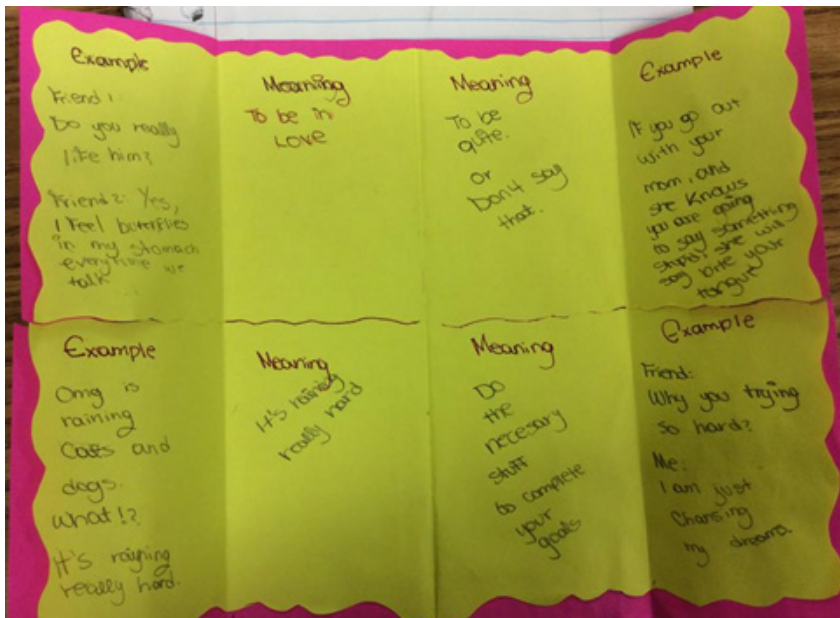 Example
Friend 1:
Do you really
like him?
Friend 2: Yes,
I feel buterflies
in my stomach
everytime we
talk
Meaning
To be in
Love
Meaning
To be
quite.
or
Don't say
that.
Example
If you go out
with your
mom, and
she knows
you are going
to say something
stupid, she will
say bite your
tongue
Example
Omg is
raining
Cats and
dogs.
what!?
It's raigning
really hard.
Meaning
It's raining
really hard
Meaning
Do
the
necesary
stuff
to complete
your
goals
Example
Friend:
Why you trying
so hard?
Me:
I am just
Chansing
my dreams.